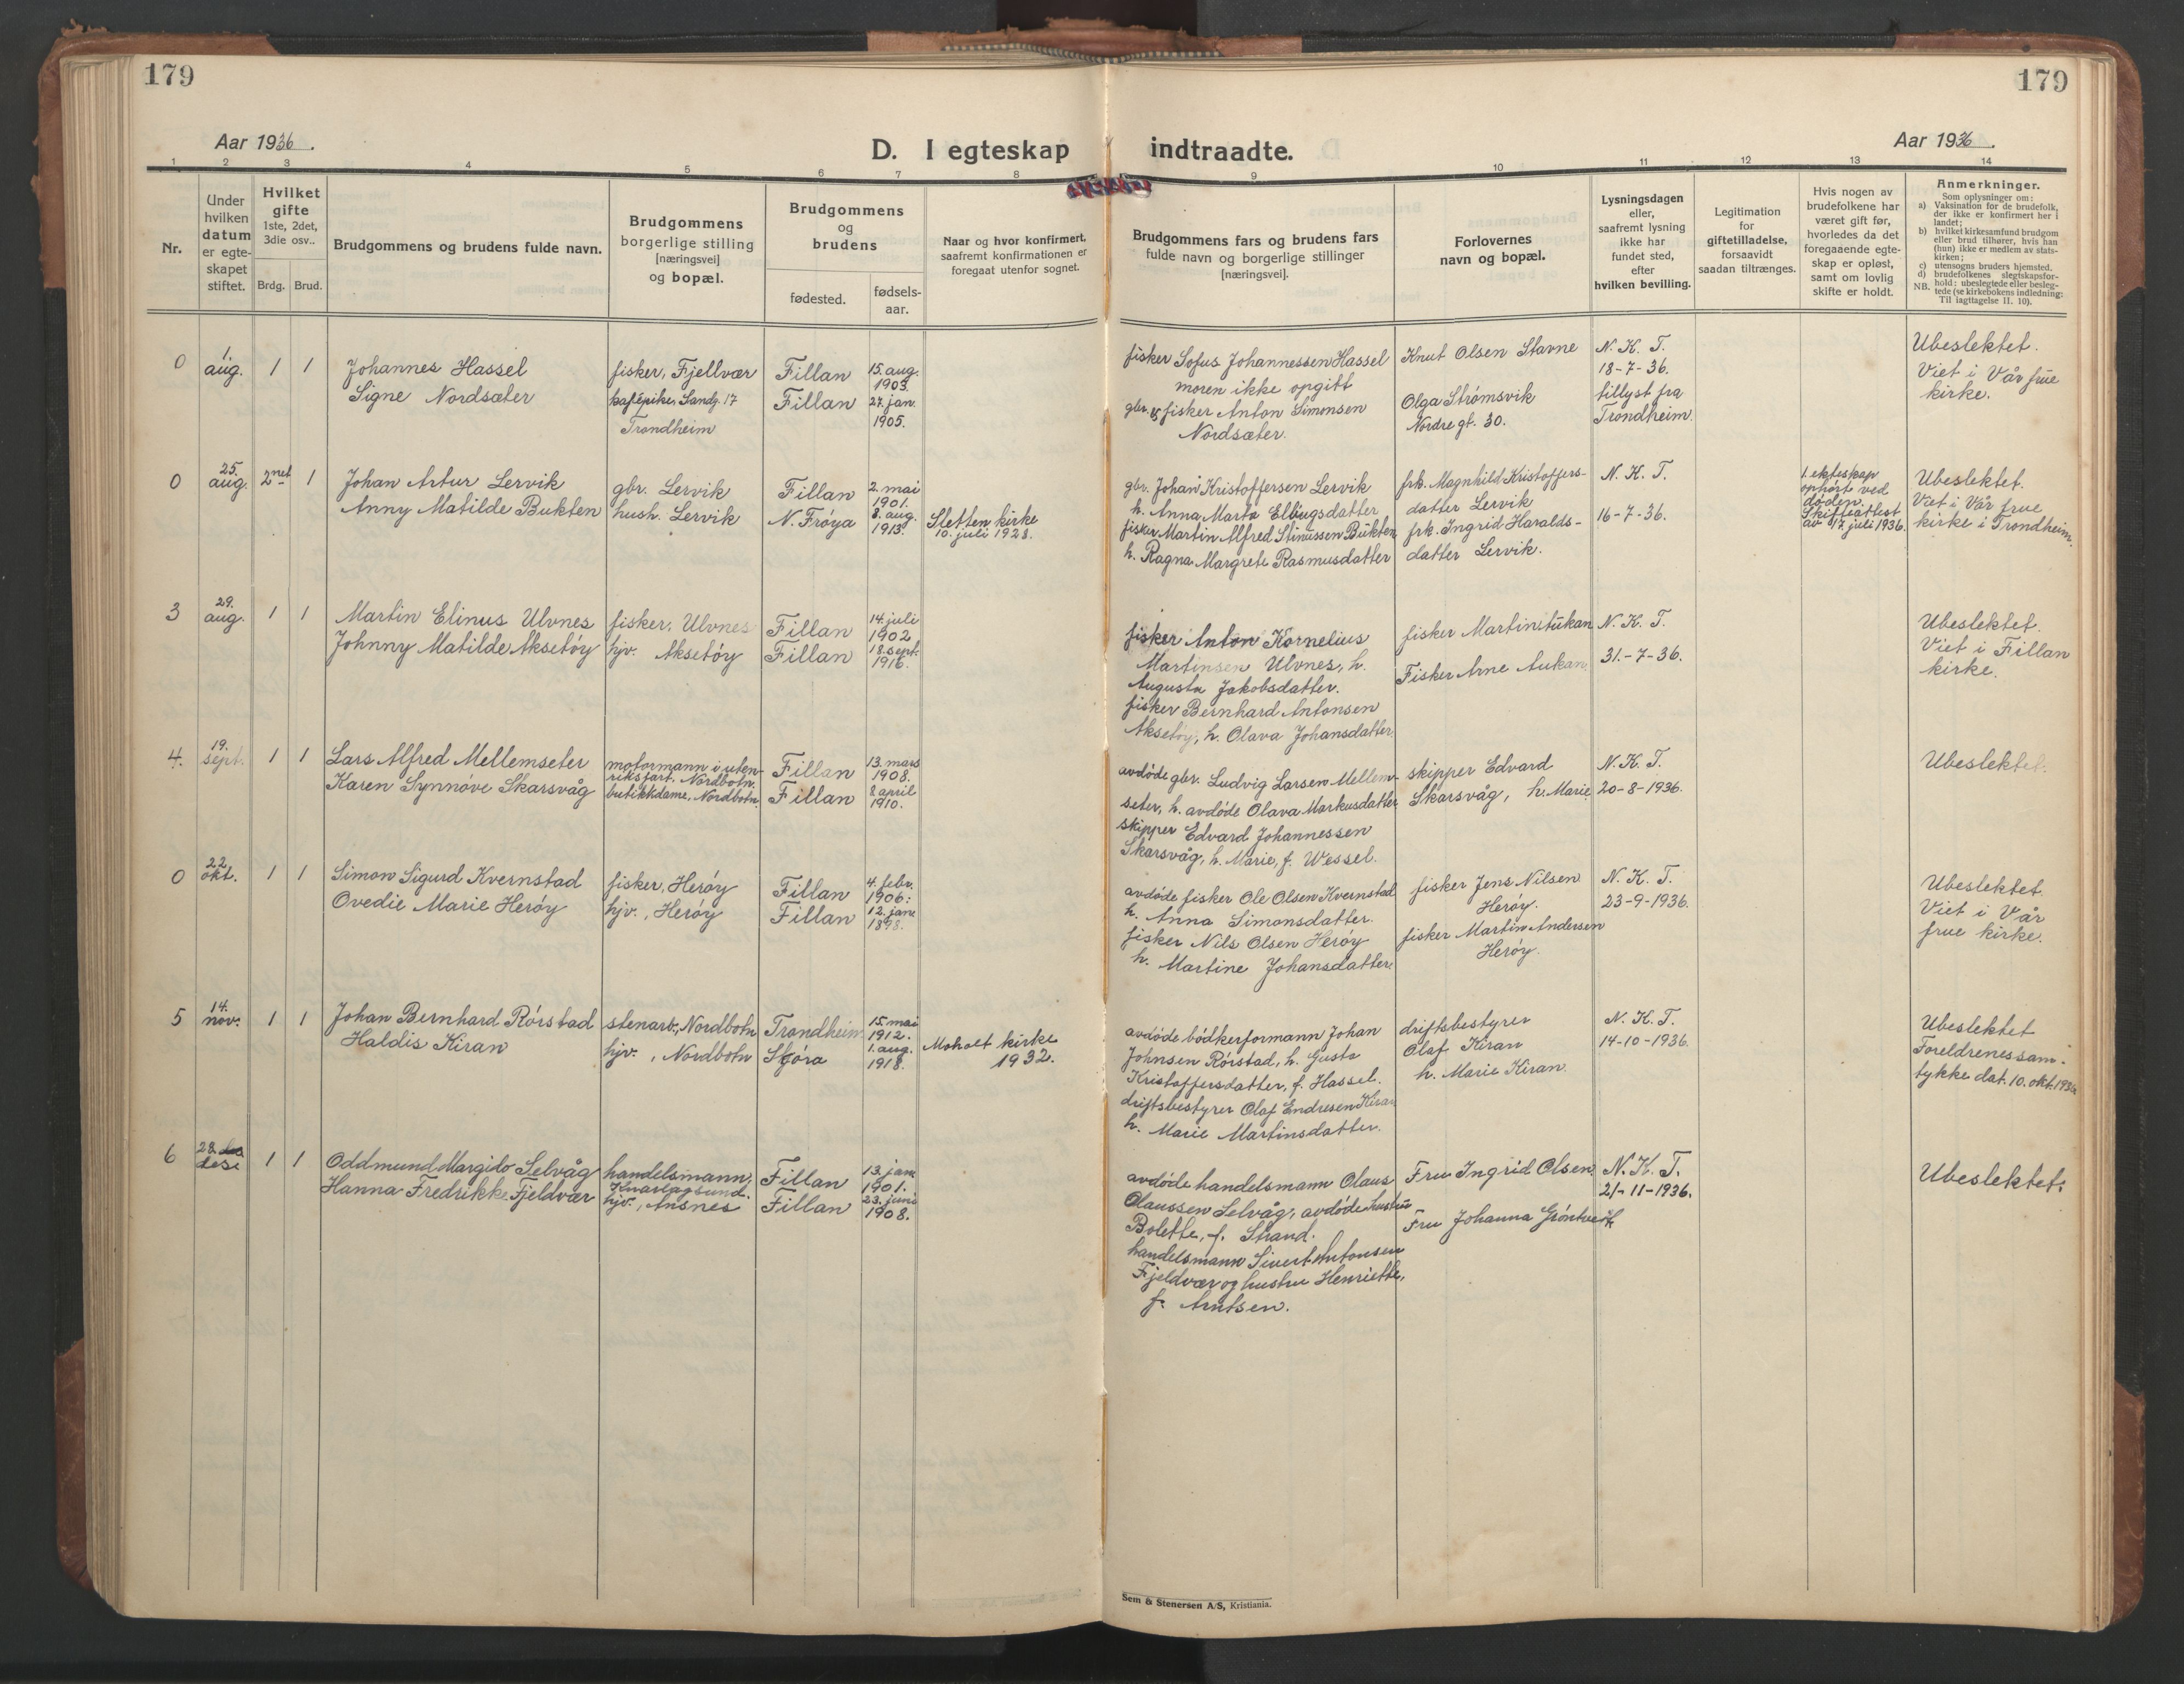 179
179
Aar 1936.
D. I egteskap indtraadte.
Aar 1936.
1 2 3 4 5 6 7 8 9 10 11 12 13 14
Nr.
Under
hvilken
datum
er egte-
skapet
stiftet.
Hvilket
gifte
1ste, 2det,
3die osv..
Brdg. Brud.
Brudgommens og brudens fulde navn.
Brudgommens
borgerlige stilling
[næringsvei]
og bopæl.
Brudgommens
og
brudens
fødested.
fødsels-
aar.
Naar og hvor konfirmert,
saafremt konfirmationen er
foregaat utenfor sognet.
Brudgommens fars og brudens fars
fulde navn og borgerlige stillinger
[næringsvei].
Forlovernes
navn og bopæl.
Lysningsdagen
eller,
saafremt lysning
ikke har
fundet sted,
efter
hvilken bevilling.
Legitimation
for
giftetilladelse,
forsaavidt
saadan tiltrænges.
Hvis nogen av
brudefolkene har
været gift før,
hvorledes da det
foregaaende egte-
skap er opløst,
samt om lovlig
skifte er holdt.
Anmerkninger.
Som oplysninger om:
a) Vaksination for de brudefolk,
der ikke er konfirmert her i
landet;
b) hvilket kirkesamfund brudgom
eller brud tilhører, hvis han
(hun) ikke er medlem av stats-
kirken;
c) utensogns bruders hjemsted.
d) brudefolkenes slegtskapsfor-
hold: ubeslegtede eller besleg-
NB. tede (se kirkebokens indledning:
Til iagttagelse II. 10).
0
1.
aug.
1 1
Johannes Hassel
Signe Nordsæter
fisker, Fjellvær
kafépike, Sandg. 17
Trondheim
Fillan
Fillan
15. aug.
1903.
27. jan.
1905.
fisker Sofus Johannessen Hassel
moren ikke opgitt
gbr. & fisker Anton Simonsen
Nordsæter.
Knut Olsen Stavne
Olga Strømsvik
Nordre gt. 30.
N. K. T.
18-7-36.
tillyst fra
Trondheim.
Ubeslektet.
Viet i Vår frue
kirke.
0
25.
aug.
2net 1
Johan Artur Lervik
Anny Matilde Bukten
gbr. Lervik
hush. Lervik
Fillan
N. Frøya
2. mai
1901.
8. aug.
1913.
Sletten kirke
10. juli 1928.
gbr. Johan Kristoffersen Lervik
h. Anna Marta Ellingsdatter
fisker Martin Alfred Stinussen Bukten
h. Ragna Margrete Rasmusdatter
frk. Magnhild Kristoffers-
datter Lervik
frk. Ingrid Haralds-
datter Lervik.
N. K. T.
16-7-36.
1. ekteskap
ophørt ved
døden
Skifteattest
av 17. juli 1936.
Ubeslektet.
Viet i Vår frue
kirke i Trondheim.
3
29.
aug.
1 1
Martin Elinus Ulvnes
Johnny Matilde Aksetøy
fisker, Ulvnes
hjv. Aksetøy
Fillan
Fillan
14. juli
1902
18. sept.
1916.
fisker Anton Kornelius
Martinsen Ulvnes, h.
Augusta Jakobsdatter.
fisker Bernhard Antonsen
Aksetøy, h. Olava Johansdatter.
fisker Martin
Fisker Arne Aukan
N. K. T.
31.-7-36.
Ubeslektet.
Viet i Fillan
kirke.
4.
19.
sept.
1 1
Lars Alfred Mellemseter
Karen Synnøve Skarsvåg
motormann i uten-
riksfart. Nordbotn.
butikkdame, Nordbotn.
Fillan
Fillan
13. mars
1908.
8. april
1910.
avdøde gbr. Ludvig Larsen Mellem-
seter, h. avdøde Olava Markusdatter
skipper Edvard Johannessen
Skarsvåg, h. Marie, f. Wessel.
skipper Edvard
Skarsvåg, h. Marie
N. K. T.
20-8-1936.
Ubeslektet.
0
22.
okt.
1 1
Simon Sigurd Kvernstad
Ovedie Marie Herøy
fisker, Herøy
hjv., Herøy
Fillan
Fillan
4. febr.
1906.
12. jan.
1898.
avdøde fisker Ole Olsen Kvernstad
h. Anna Simonsdatter.
fisker Nils Olsen Herøy
h. Martine Johansdatter.
fisker Jens Nilsen
Herøy.
fisker Martin Andersen
Herøy.
N. K. T.
23-9-1936.
Ubeslektet.
Viet i Vår
frue kirke.
5
14.
nov.
1 1
Johan Bernhard Rørstad
Haldis Kiran
stenarb., Nordbotn
hjv., Nordbotn
Trondheim
Stjøra
15. mai
1912.
1. aug.
1918.
Moholt kirke
1932.
avdøde bødkerformann Johan
Johnsen Rørstad, h. Gusta
Kristoffersdatter, f. Hassel.
driftsbestyrer Olaf Endresen Kiran
h. Marie Martinsdatter.
driftsbestyrer
Olaf Kiran
h. Marie Kiran
N. K. T.
14-10-1936.
Ubeslektet
Foreldrenes sam-
tykke dat. 10. okt. 1936
6
28.
des.
1 1
Oddmund Margido Selvåg
Hanna Fredrikke Fjeldvær
handelsmann,
Knarlagsund.
hjv., Ansnes
Fillan
Fillan
13. jan.
1901.
23. juni
1908.
avdøde handelsmann Olaus
Olaussen Selvåg, avdøde hustru
Bolette, f. Strand.
handelsmann Sivert Antonsen
Fjeldvær og hustru Henriette,
f. Arntsen.
Fru Ingrid Olsen
Fru Johanna Grøntvedt
N. K. T.
21-11-1936.
Ubeslektet.
Sem & Stenersen A/S, Kristiania.